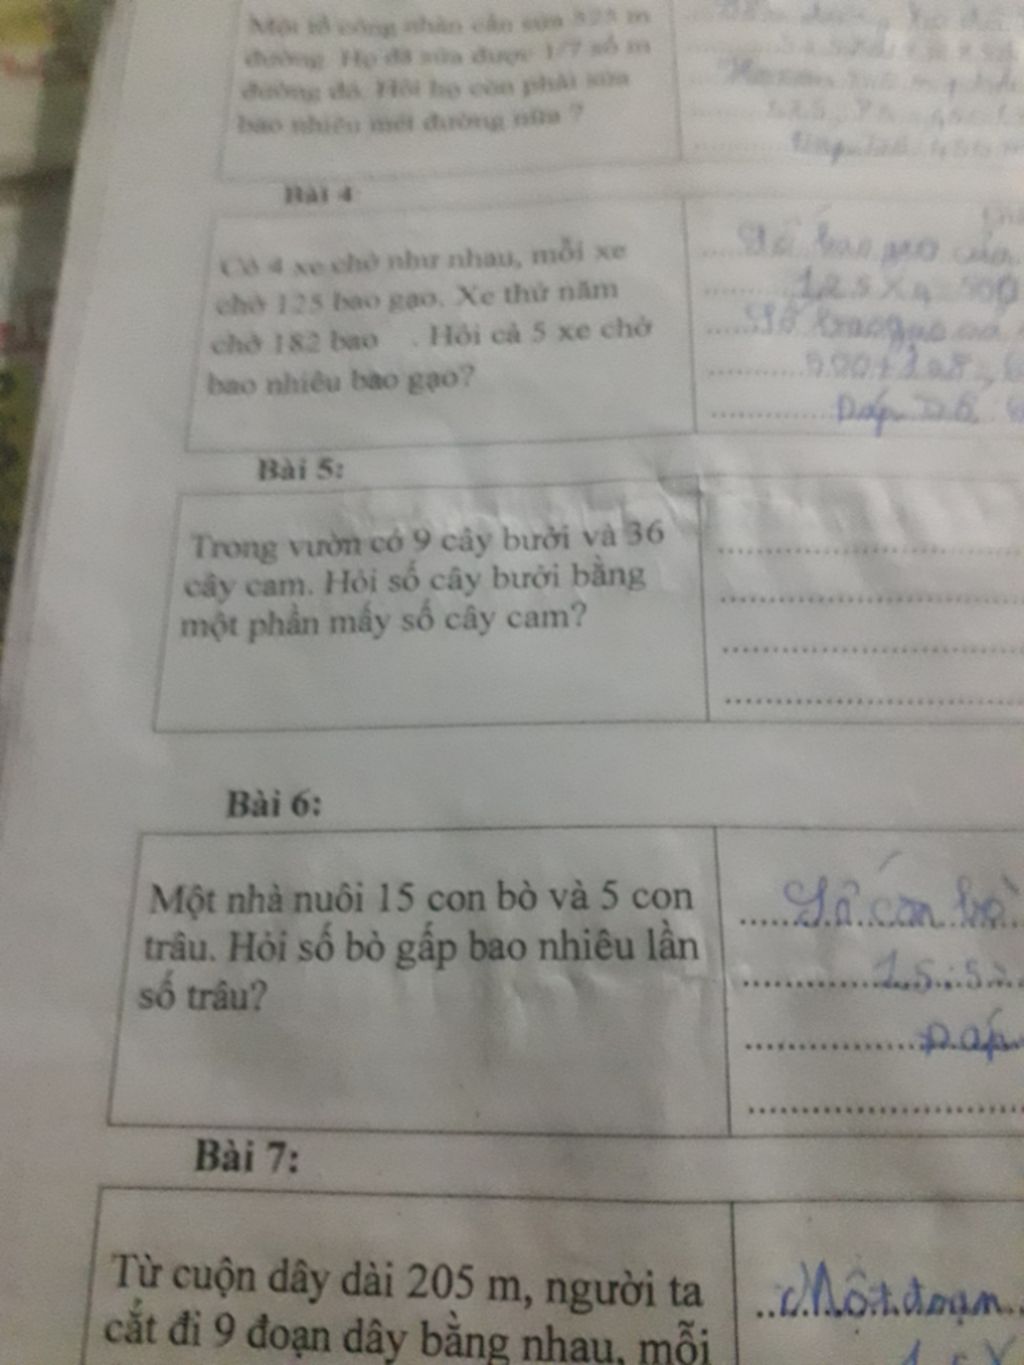 Một tổ công nhân cần sửa 525 m
đường. Họ đã sửa được 1/7 số m
đường đó. Hỏi họ còn phải sửa
bao nhiêu mét đường nữa ?
Bài 4
Có 4 xe chở như nhau, mỗi xe
chở 125 bao gạo. Xe thứ năm
chở 182 bao . Hỏi cả 5 xe chở
bao nhiêu bao gạo?
Số bao gạo của
125 x 4
Số bao gạo
Đáp Số
Bài 5:
Trong vườn có 9 cây bưởi và 36
cây cam. Hỏi số cây bưởi bằng
một phần mấy số cây cam?
Bài 6:
Một nhà nuôi 15 con bò và 5 con
trâu. Hỏi số bò gấp bao nhiêu lần
số trâu?
Số con bò
15 : 5 =
Đáp
Bài 7:
Từ cuộn dây dài 205 m, người ta
cắt đi 9 đoạn dây bằng nhau, mỗi
Một đoạn